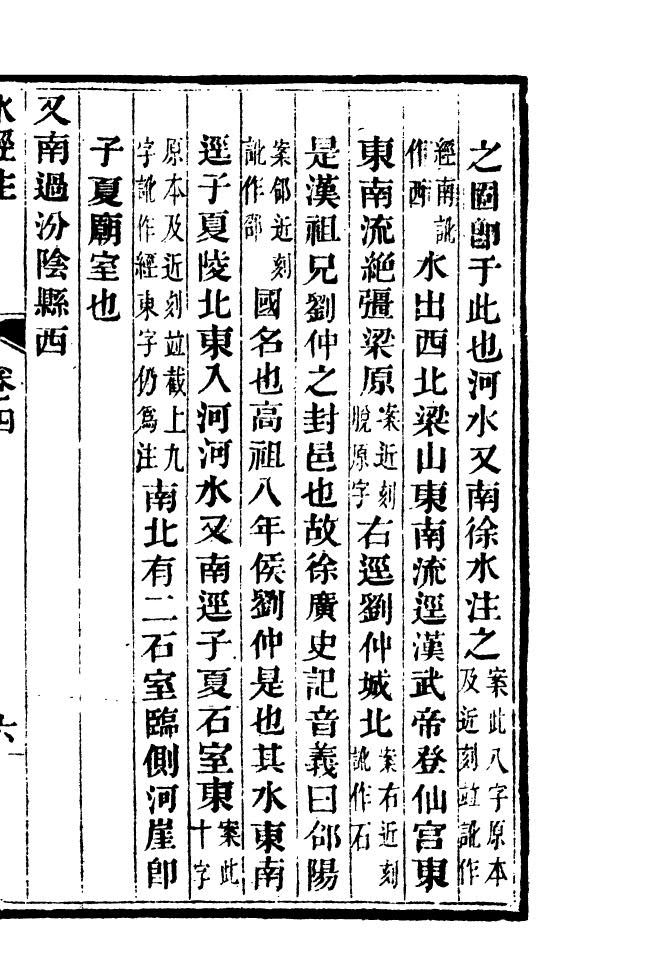 之國卽于此也河水又南徐水注之案此八字原本及近刻竝訛作
經南訛作西水出西北梁山東南流逕漢武帝登仙宮東
東南流絶彊梁原案近刻脫原字右逕劉仲城北案右近刻訛作石
是漢祖兄劉仲之封邑也故徐廣史記音義曰郃陽
案郃近刻訛作國名也高祖八年侯劉仲是也其水東南
逕子夏陵北東入河河水又南逕子夏石室東案此十字
原本及近刻竝截上九字訛作經東字仍爲注南北有二石室臨側河崖卽
子夏廟室也
又南過汾陰縣西
水經注 卷四 六